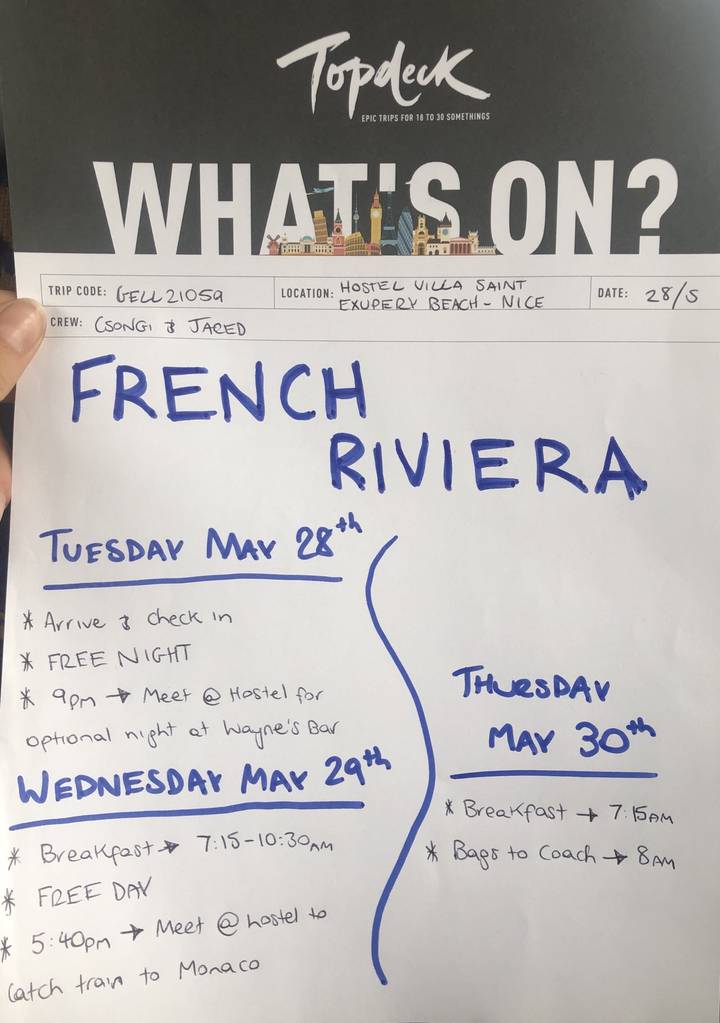 Topdeck
EPIC TRIPS FOR 18 TO 30 SOMETHINGS
WHAT'S ON?
TRIP CODE: GELL21059
LOCATION: HOSTEL VILLA SAINT
EXUPERY BEACH - NICE
DATE: 28/5
CREW: CSONGI & JACED
FRENCH
RIVIERA
TUESDAY MAY 28th
* Arrive & check in
* FREE NIGHT
* 9pm → Meet @ Hostel for
optional night at Wayne's Bar
WEDNESDAY MAY 29th
* Breakfast → 7:15-10:30AM
* FREE DAY
* 5:40pm → Meet @ hostel to
Catch train to Monaco
THURSDAY
MAY 30th
* Breakfast → 7:15AM
* Bags to Coach → 8AM